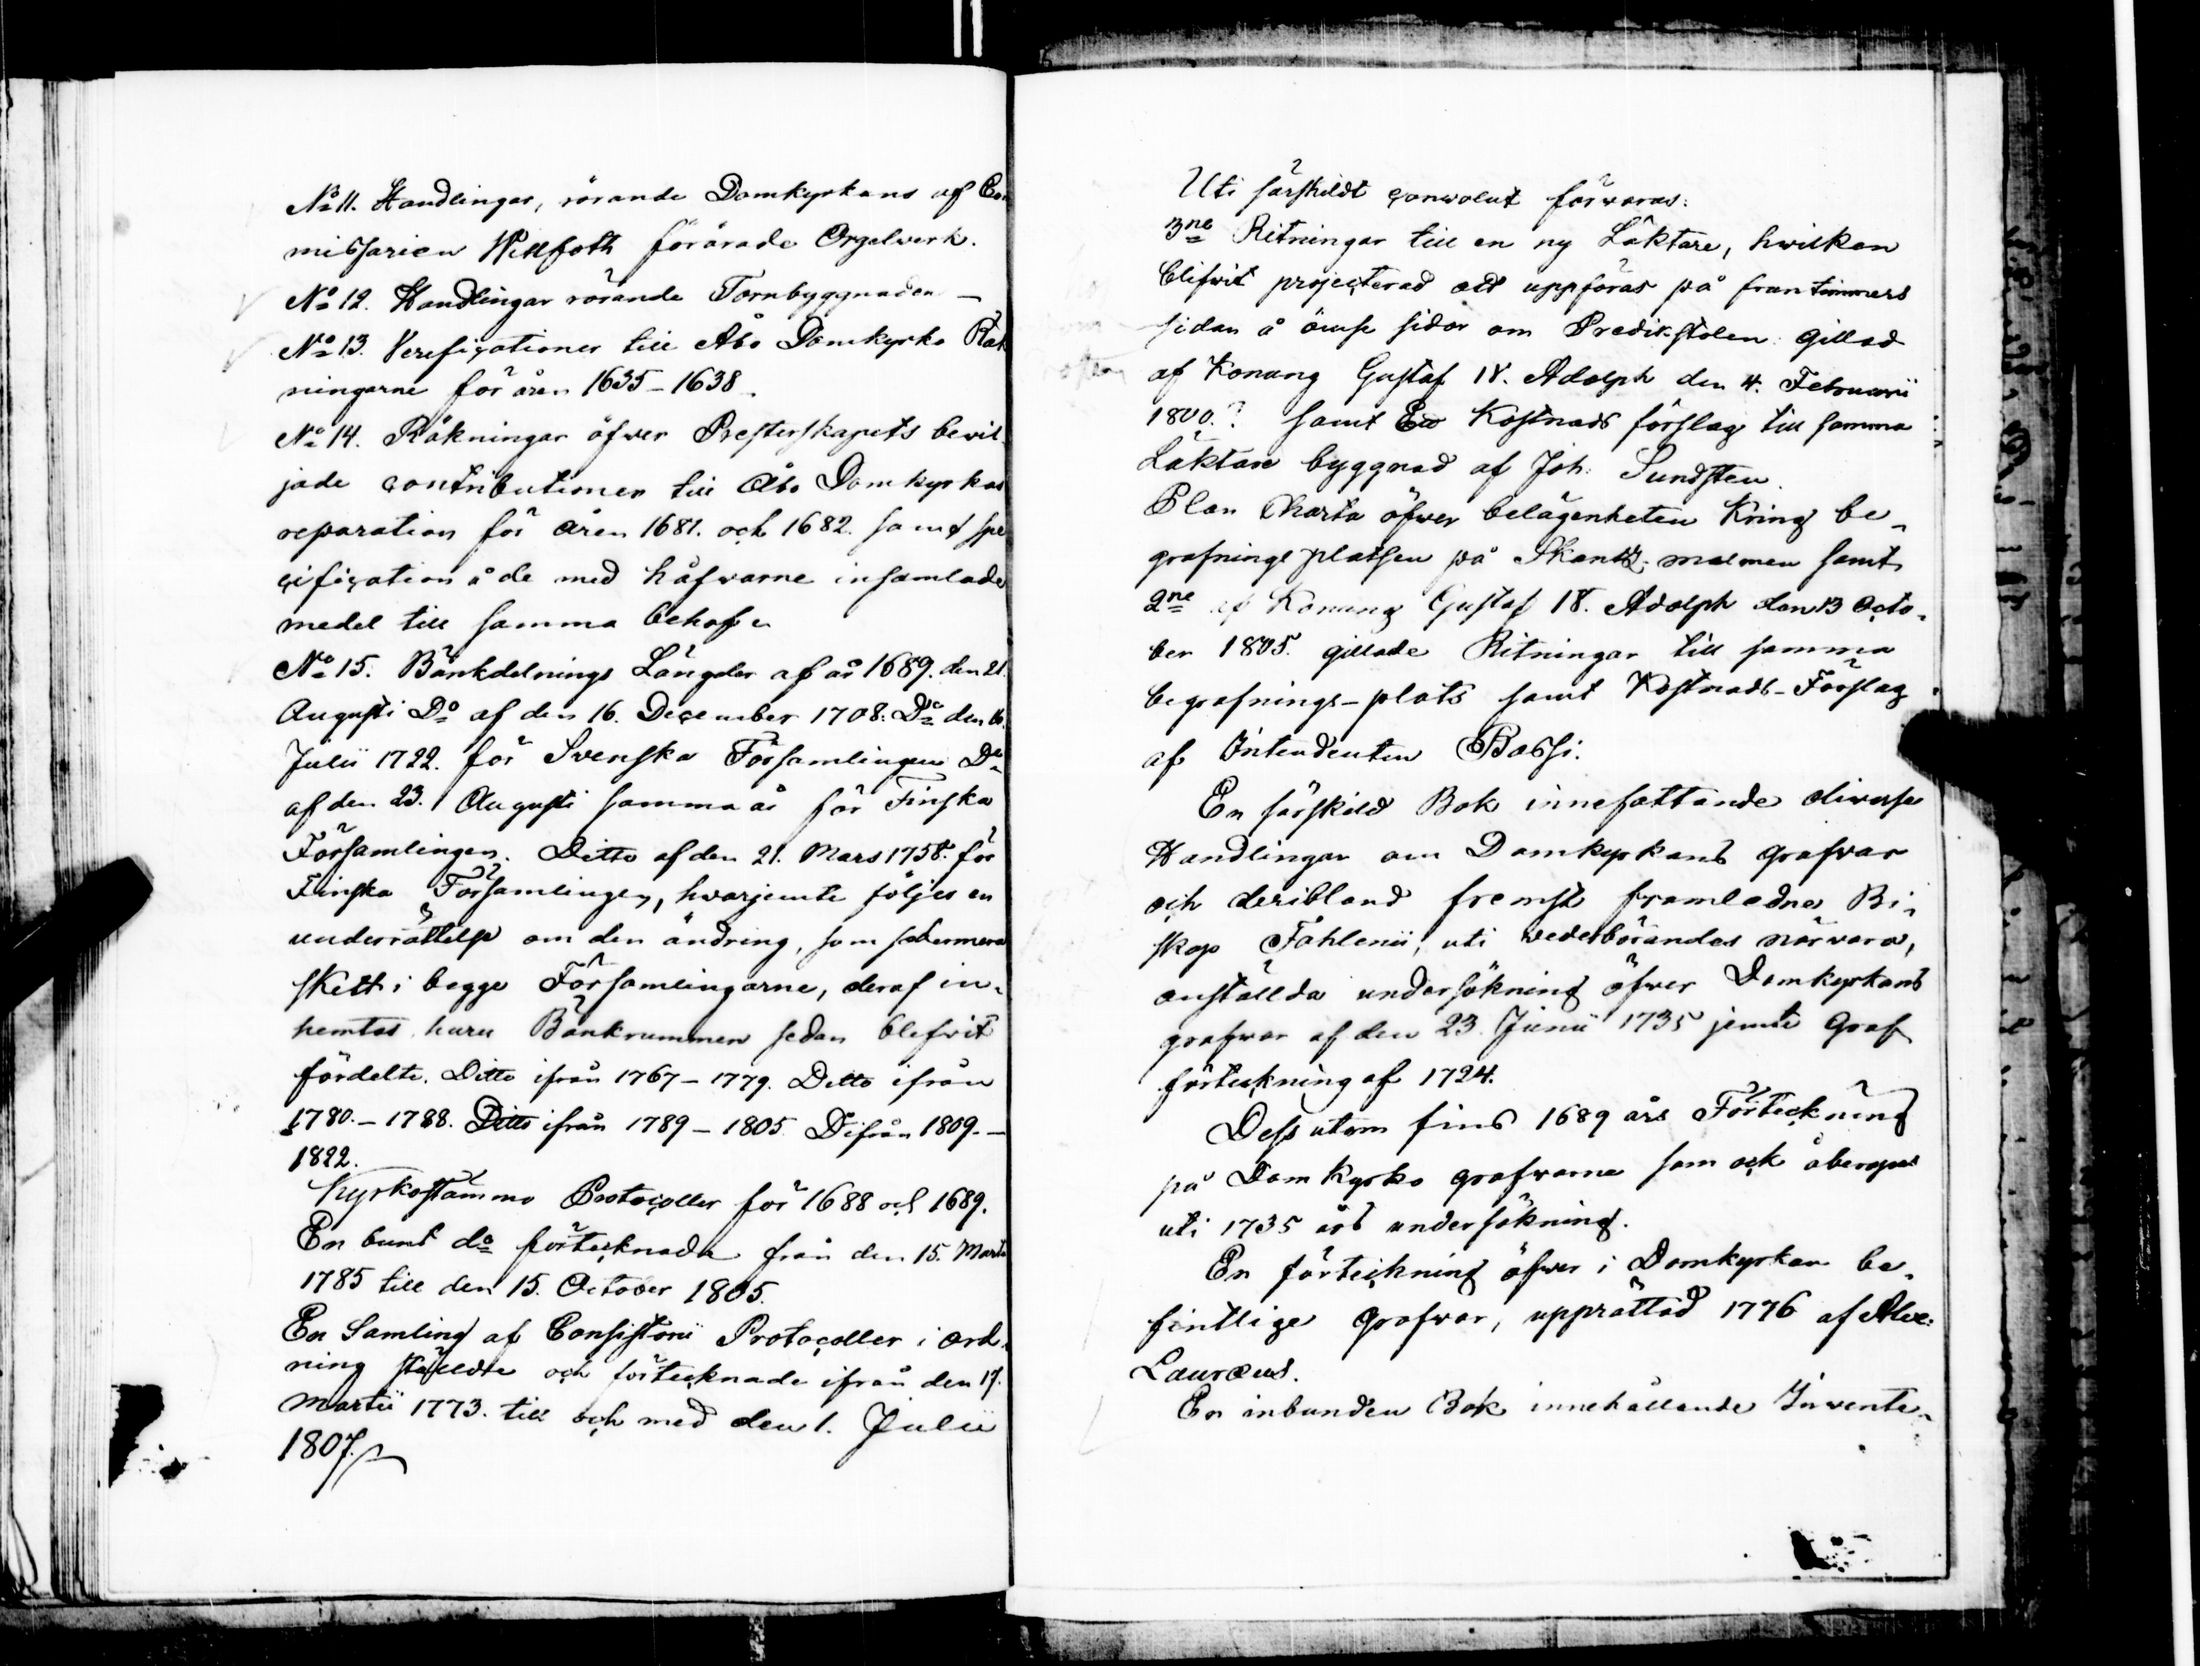 No 11. Handlingar, rörande Domkyrkans af Com
missarien Wittfoth förärade Orgelverk.
No 12. Handlingar rörande Tornbyggnaden —
No 13. Verificationer till Åbo Domkyrko Räk
ningarne för åren 1635 – 1638.
No 14. Räkningar öfwer Presterskapets bevil
jade contributioner till Åbo Domkyrkas
reparation för åren 1681. och 1682. samt spe
cification å de med håfwarne insamlade
medel till samma behof.
No 15. Bänkdelnings Längder af år 1689. den 21.
Augusti Do af den 16. December 1708. Do den 16.
Julii 1722. för Svenska Församlingen Do
af den 23. Augusti samma år för Finska
Församlingen. Ditto af den 21. Mars 1758. för
Finska Församlingen, hvarjemte följer en
underrättelse om den ändring, som sedermera
skett i begge Församlingarne, deraf in-
hemtas huru Bänkrummen sedan blefvit
fördelte. Ditto ifrån 1767 – 1779. Ditto ifrån
1780. – 1788. Ditto ifrån 1789 – 1805. D ifrån 1809. –
1822.
Kyrkostämmo Protocoller för 1688 och 1689.
En bunt do förtecknade från den 15. Martii
1785 till den 15. October 1805.
En Samling af Consistorii Protocoller i ord-
ning stälde och förtecknade ifrån den 17.
Martii 1773. till och med den 1. Julii
1807.
Uti särskildt convolut förvaras:
3ne Ritningar till en ny Läktare, hwilken
blifvit projecterad att uppföras på fruntimmers
sidan å ömse sidor om Predikstolen gillad
af Konung Gustaf IV. Adolph den 4. Februarii
1800.? samt Ett Kostnads förslag till samma
Läktare byggnad af Joh: Sundsten.
Plan Charta öfwer belägenheten kring be-
grafnings platsen på Skantz-malmen samt
2ne af Konung Gustaf IV. Adolph den 13 Octo-
ber 1805. gillade Ritningar till samma
begrafnings-plats samt Kostnads-Förslag
af Intendenten Bassi.
En särskild Bok innefattande diverse
Handlingar om Domkyrkans grafvar
och deribland fremst framledne Bi-
skop Fahlenii, uti vederbörandes närvaro,
anställda undersökning öfwer Domkyrkans
grafwar af den 23. Junii 1735 jemte Graf
förteckning af 1724.
Dess utom fins 1689 års Förteckning
på Dom kyrko grafwarne som ock åberopas
uti 1735 års undersökning.
En förteckning öfwer i Domkyrkan be-
fintlige grafvar, upprättad 1776 af Alex:
Lauræus.
En inbunden Bok innehållande Invente-